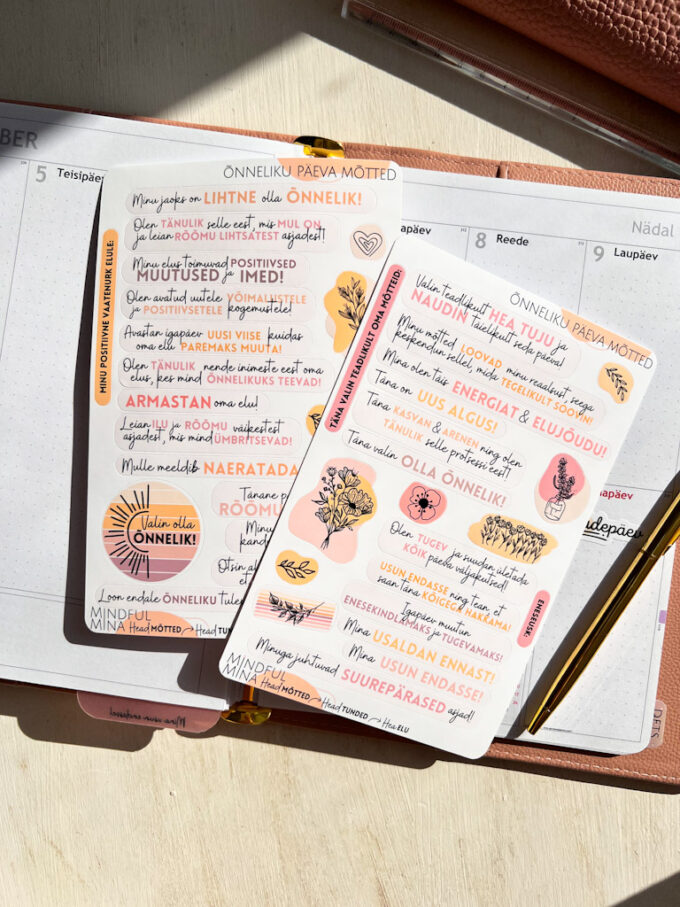 BER
5 Teisipäe
ÕNNELIKU PÄEVA MÕTTED
MINU POSITIIVNE VAATENURK ELULE:
Minu jaoks on LIHTNE olla ÕNNELIK!
Olen TÄNULIK selle eest, mis MUL ON
ja leian RÕÕMU LIHTSATEST asjadest!
Minu elus toimuvad POSITIIVSED
MUUTUSED ja IMED!
Olen avatud uutele VÕIMALUSTELE
ja POSITIIVSETELE kogemustele!
Avastan igapäev UUSI VIISE kuidas
oma elu PAREMAKS MUUTA!
Olen TÄNULIK nende inimeste eest oma
elus, kes mind ÕNNELIKUKS TEEVAD!
ARMASTAN oma elu!
Leian ILU ja RÕÕMU väikestest
asjadest, mis mind ÜMBRITSEVAD!
Mulle meeldib NAERATADA
Valin olla
ÕNNELIK!
Tänane p
RÕÕMU
Minu
kand
Otsin al
Loon endale ÕNNELIKU Tule
MINDFUL
MINA Head MÕTTED Head TUND
äev
8 Reede
Nädal
9 Laupäev
ÕNNELIKU PÄEVA MÕTTED
TÄNA VALIN TEADLIKULT OMA MÕTTEID:
Valin teadlikult HEA TUJU ja
NAUDIN täielikult seda päeva!
Minu mõtted LOOVAD minu reaalsust, seega
keskendun sellel, mida TEGELIKULT SOOVIN!
Mina olen täis ENERGIAT & ELUJÕUDU!
Täna on UUS ALGUS!
Täna KASVAN & ARENEN ning olen
TÄNULIK selle protsessi eest!
Täna valin OLLA ÕNNELIK!
Olen TUGEV ja suudan ületada
KÕIK päeva väljakutsed!
ENESEUSK:
USUN ENDASSE ning tean, et
saan täna KÕIGEGA HAKKAMA!
Igapäev muutun
ENESEKINDLAMAKS ja TUGEVAMAKS!
Mina USALDAN ENNAST!
Mina USUN ENDASSE!
Minuga juhtuvad SUUREPÄRASED asjad!
MINDFUL
MINA Head MÕTTED Head TUNDED Hea ELU
hapäev
udepäev
DETS